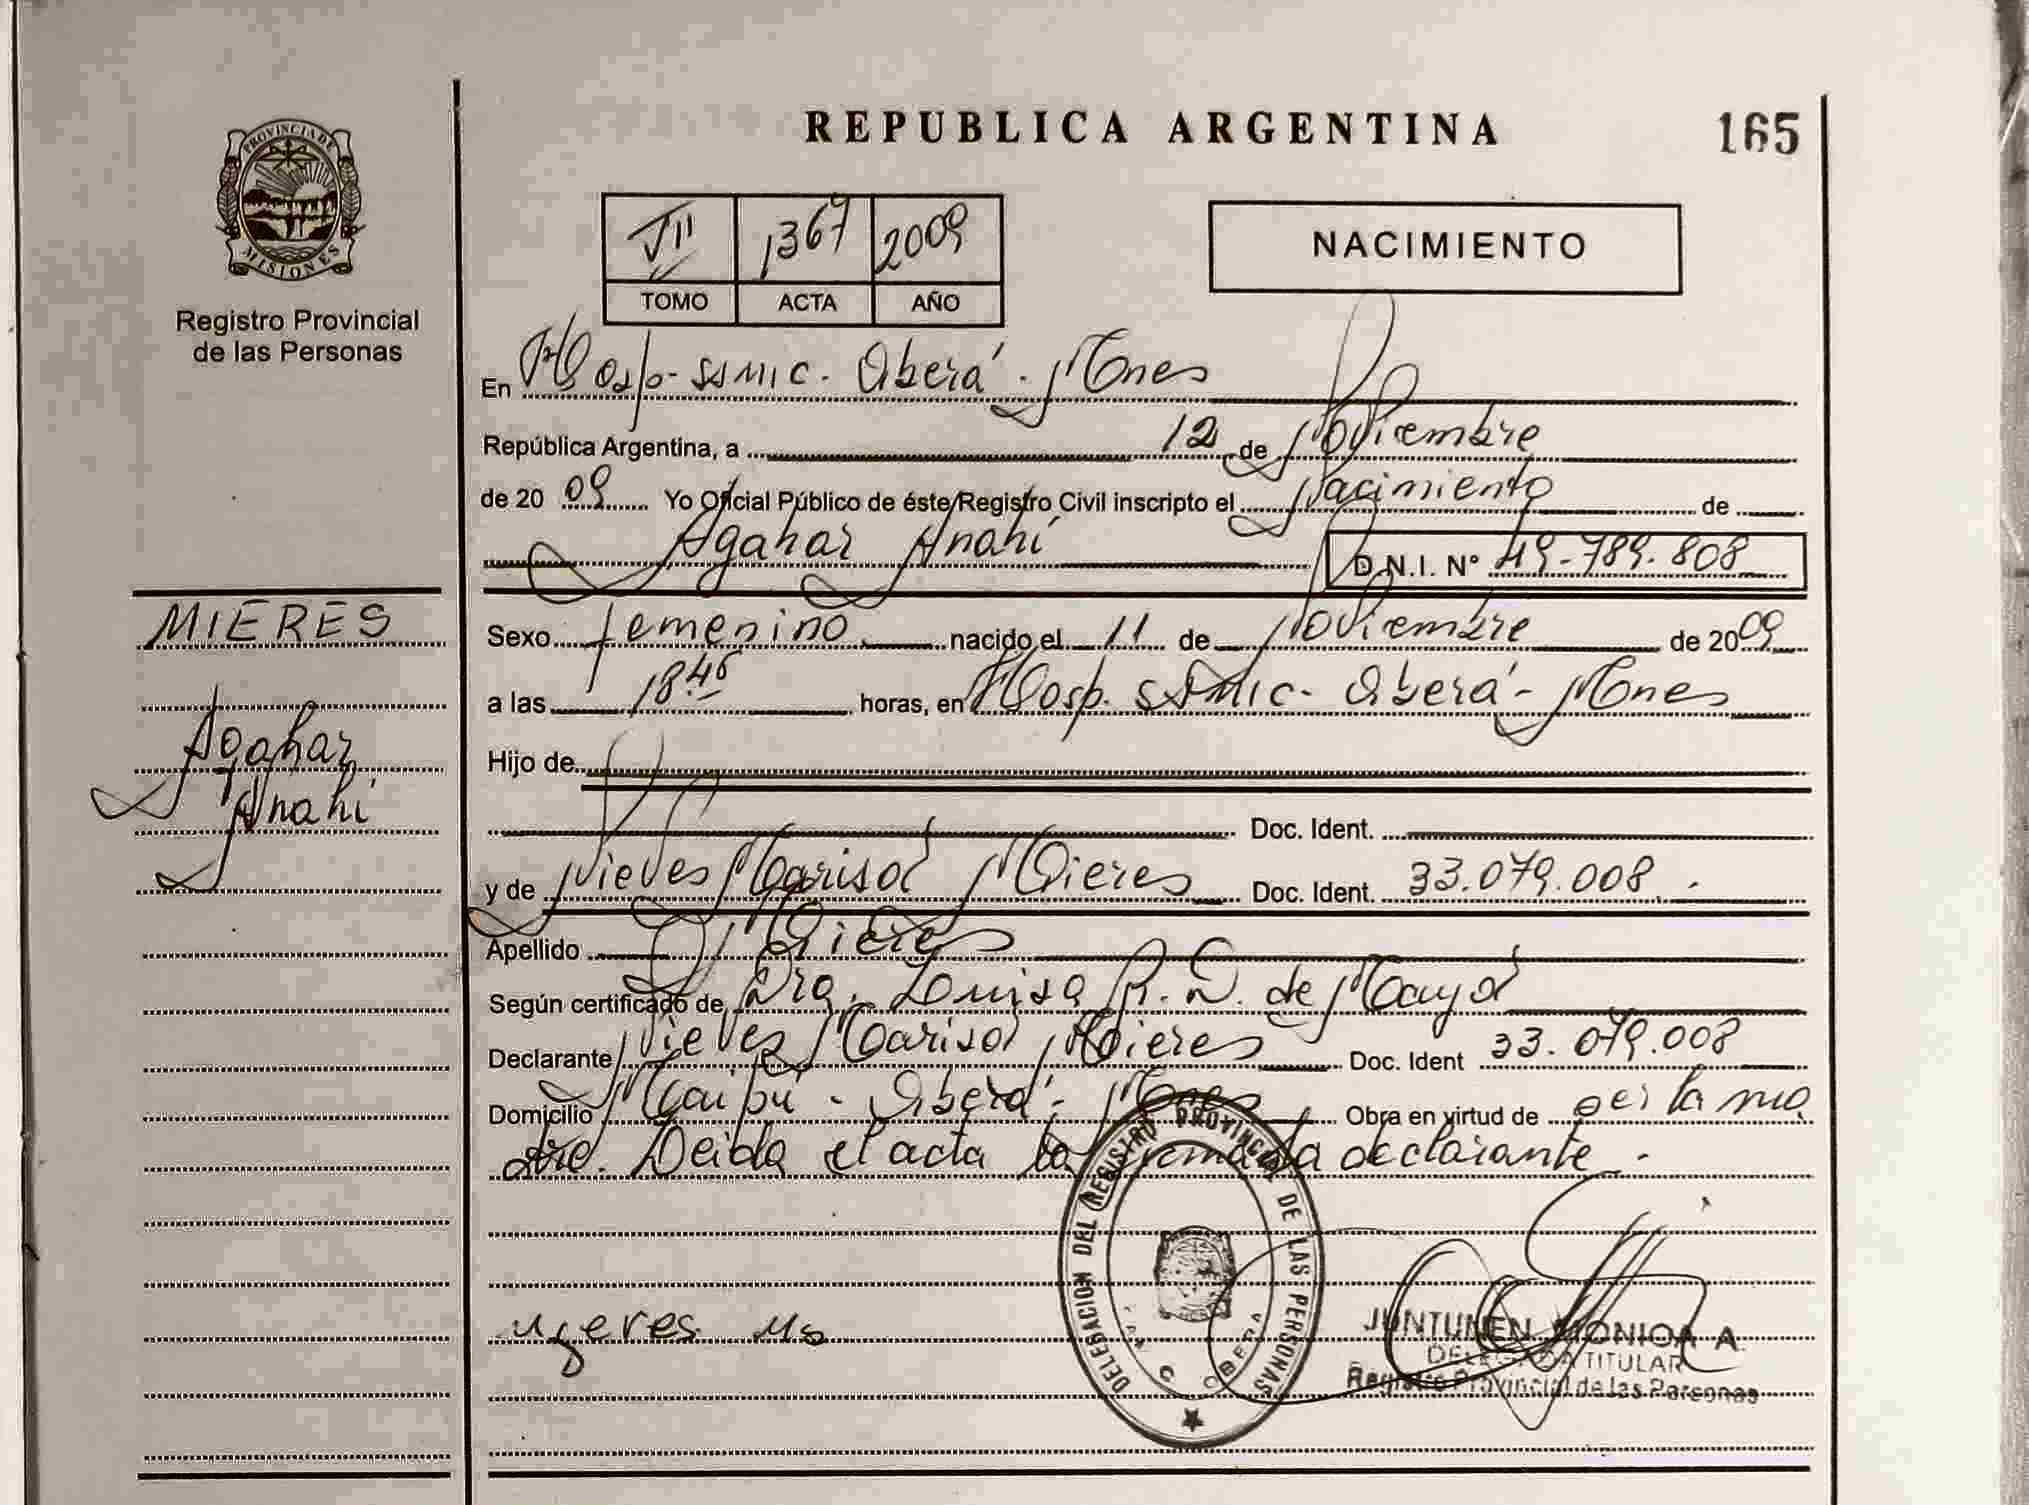 PROVINCIA DE
MISIONES
Registro Provincial
de las Personas
MIERES
Agahar
Anahí
REPUBLICA ARGENTINA
165
VII 1367 2009
TOMO ACTA AÑO
NACIMIENTO
En Hosp. SAMIC. Oberá. Mnes
República Argentina, a 12 de Noviembre
de 2009 Yo Oficial Público de éste Registro Civil inscripto el Nacimiento de
Agahar Anahí D.N.I. N° 49-789.808
Sexo femenino nacido el 11 de Noviembre de 2009
a las 18.46 horas, en Hosp. SAMIC- Oberá- Mnes
Hijo de
Doc. Ident.
y de Nieves Marisol Mieres Doc. Ident. 33.079.008.
Apellido Mieres
Según certificado de Dra. Luisa R. D. de Mayol
Declarante Nieves Marisol Mieres Doc. Ident 33.079.008
Domicilio Maipú - Oberá- Mnes Obra en virtud de ser la ma
dre. Leida el acta la firma la declarante.-
DELEGACION DEL REGISTRO PROVINCIAL DE LAS PERSONAS
OBERA
JUNTUNEN MONICA A.
DELEGADA TITULAR
Registro Provincial de las Personas